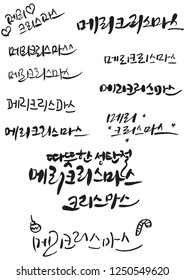 메리
크리스마스
메리크리스마스
메리크리스마스
메리크리스마스
메리크리스마스
메리크리스마스
메리크리스마스
메리크리스마스
메리크리스마스
메리
크리스마스
따뜻한 성탄절
메리크리스마스
크리스마스
메리크리스마스
shutterstock.com · 1250549620